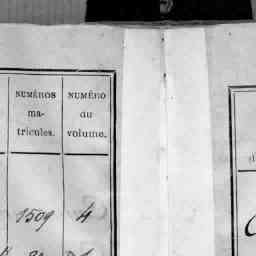 NUMÉROS
ma-
tricules.
NUMÉRO
du
volume.
1509 4